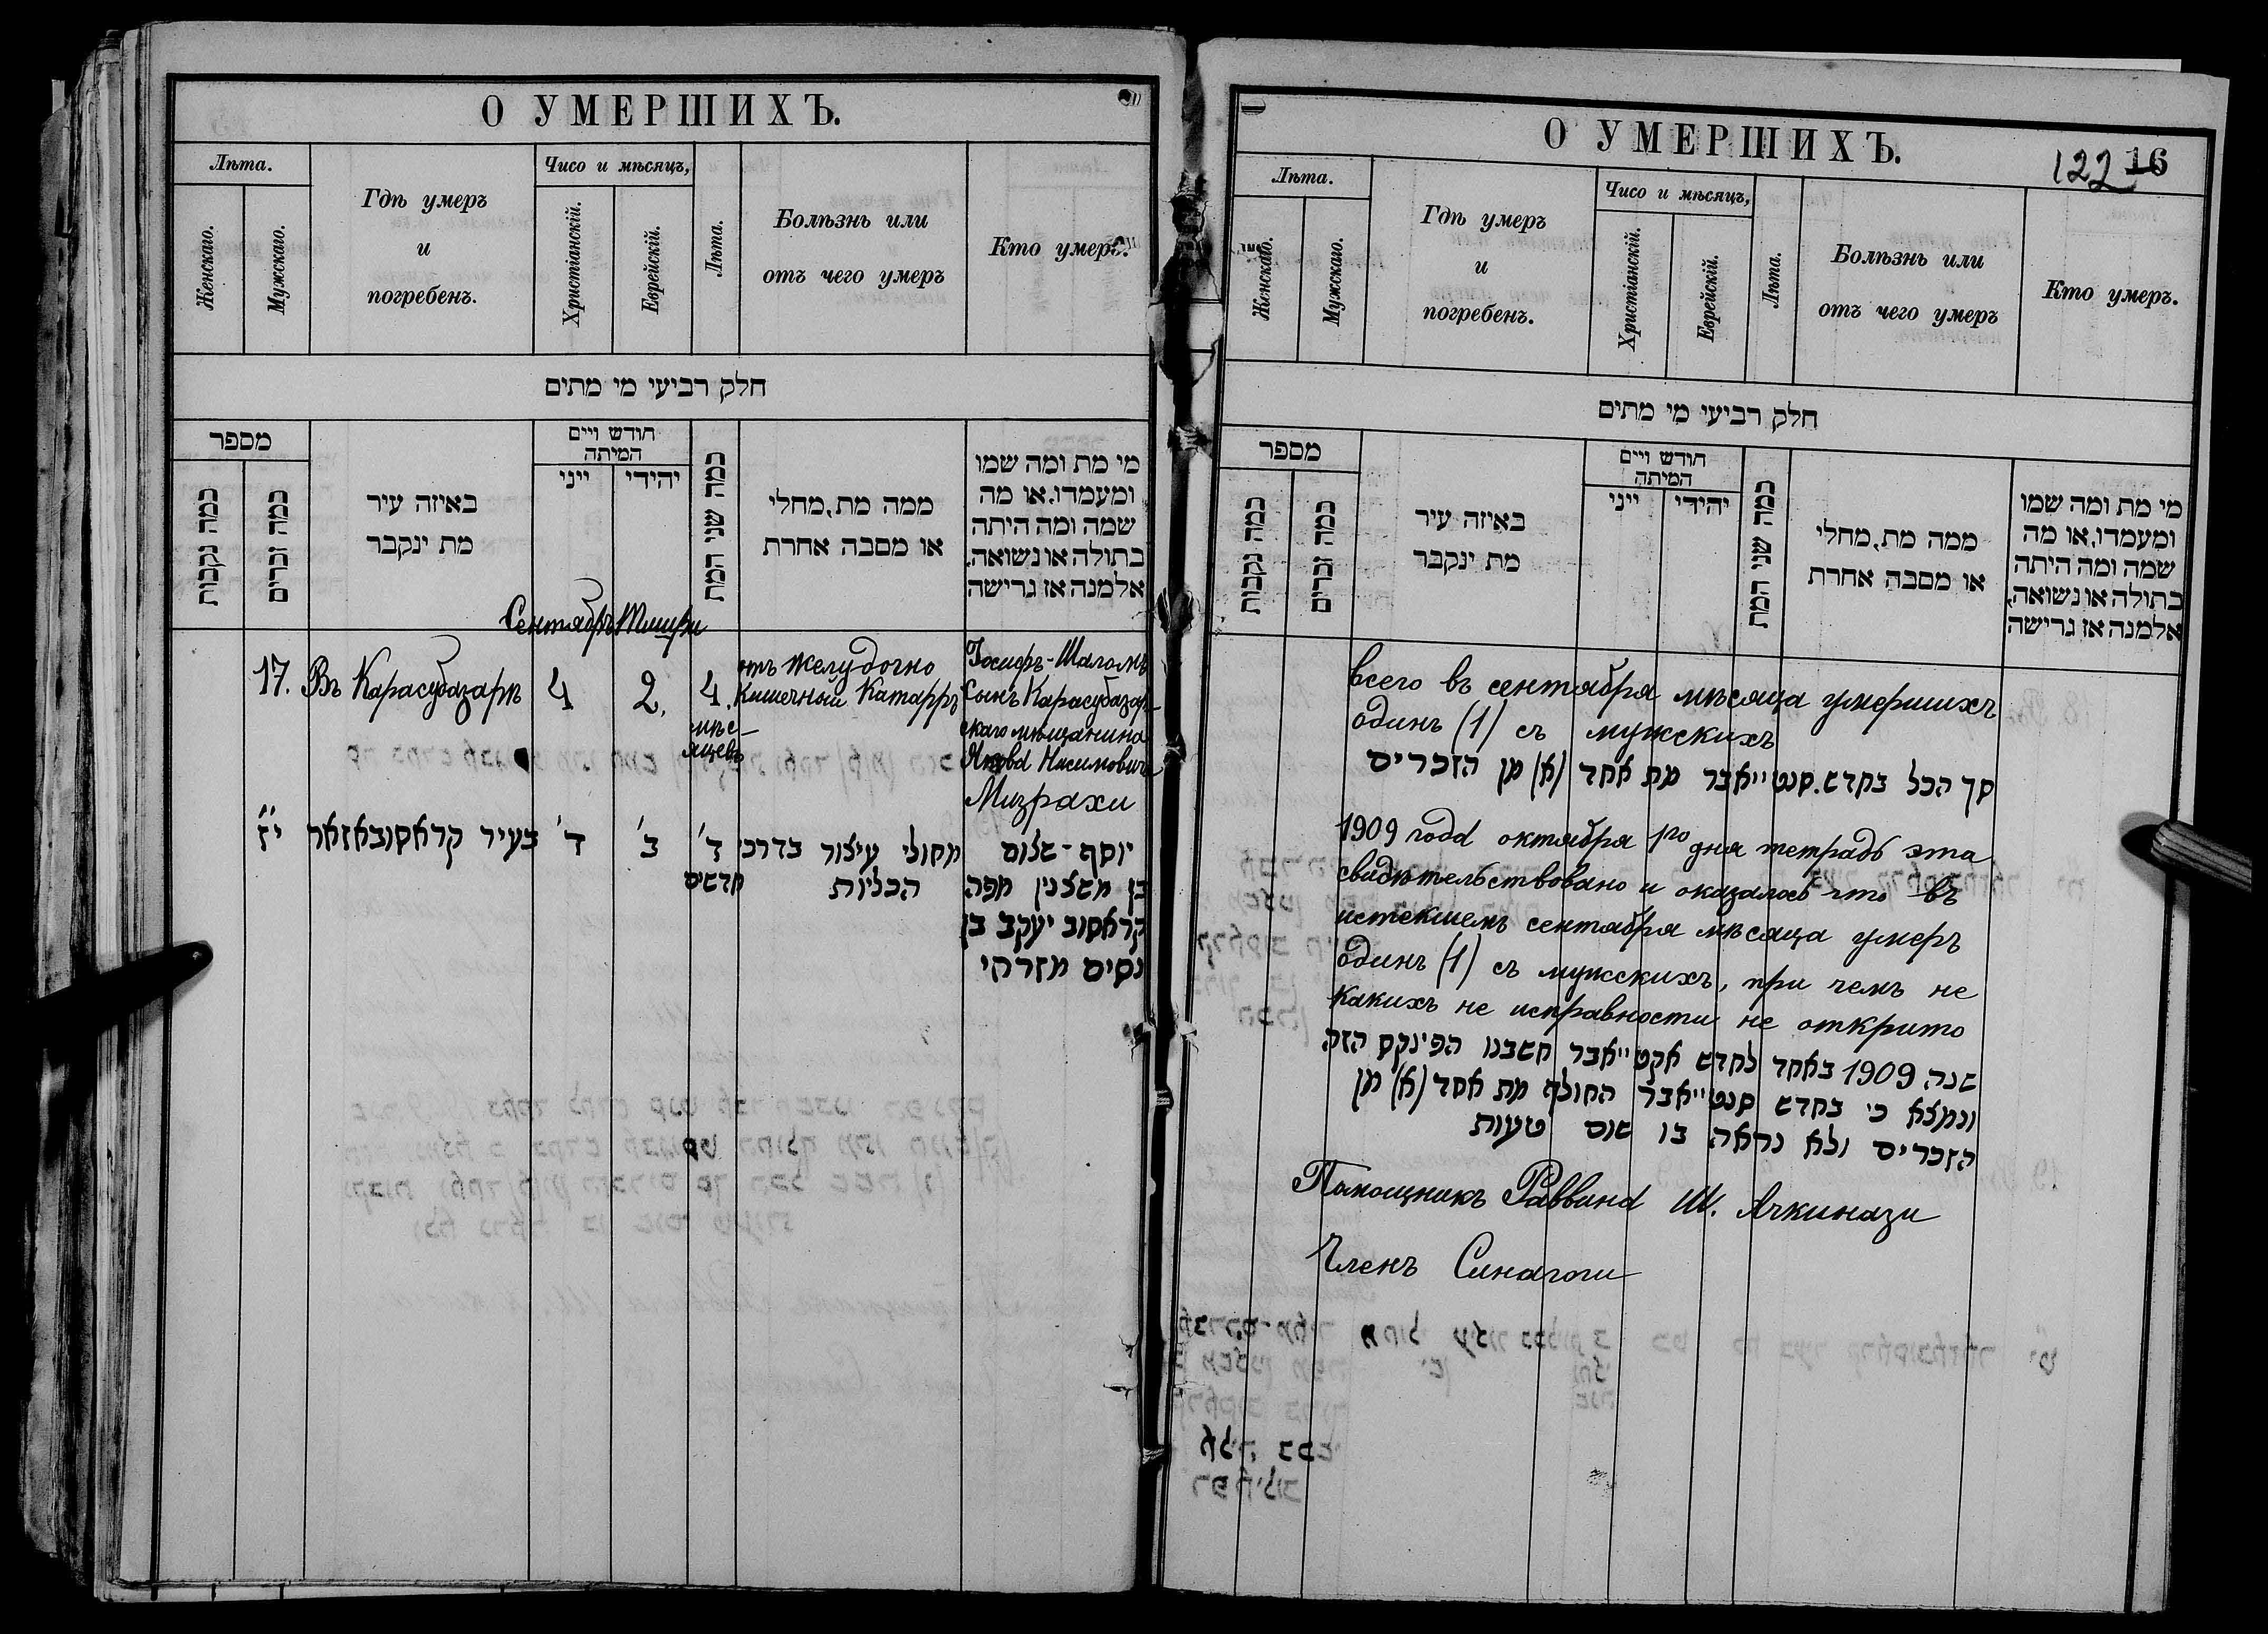 О УМЕРШИХЪ.
Лѣта.
Женскаго.
Мужскаго.
Гдѣ умеръ
и
погребенъ.
Чисо и мѣсяцъ,
Христіанскій.
Еврейскій.
Лѣта.
Болѣзнь или
отъ чего умеръ
Кто умеръ.
חלק רביעי מי מתים
מספר
כמה נקבות
כמה זכרים
באיזה עיר
מת ינקבר
חודש ויים
המיתה
ייני
יהידי
כמה שני המת
ממה מת, מחלי
או מסבה אחרת
מי מת ומה שמו
ומעמדו, או מה
שמה ומה היתה
בתולה או נשואה,
אלמנה אז גרישה
Сентябрь Тишри
17. Въ Карасубазарѣ 4 2. 4.
мѣс-
яцевъ
отъ желудочно
Кишечный Катарръ
Іосифъ-Шаломъ
Сынъ Карасубазар-
скаго мѣщанина
Якова Нисимовича
Мизрахи
י״ז
בעיר קראסובאזאר
ד׳
ב׳
ד׳
חדשים
מחולי עיצור בדרכי
הכליות
יוסף-שלום
בן משצנין מפה
קראסוב יעקב בן
נסים מזרחי
О УМЕРШИХЪ.
122 16
Лѣта.
Женскаго.
Мужскаго.
Гдѣ умеръ
и
погребенъ.
Чисо и мѣсяцъ,
Христіанскій.
Еврейскій.
Лѣта.
Болѣзнь или
отъ чего умеръ
Кто умеръ.
חלק רביעי מי מתים
מספר
כמה נקבות
כמה זכרים
באיזה עיר
מת ינקבר
חודש ויים
המיתה
ייני
יהידי
כמה שני המת
ממה מת, מחלי
או מסבה אחרת
מי מת ומה שמו
ומעמדו, או מה
שמה ומה היתה
בתולה או נשואה,
אלמנה אז גרישה
всего въ сентября мѣсяца умершихъ
одинъ (1) съ мужскихъ
סך הכל בחדש סנטייאבר מת אחד (א) מן הזכרים
1909 года октября 1го дня тетрадь эта
свидѣтельствовано и оказалось что въ
истекшемъ сентября мѣсяца умеръ
одинъ (1) съ мужскихъ, при чемъ не
какихъ не исправности не открыто
שנה 1909 באחד לחדש אקטייאבר חשבנו הפינקס הזה
ונמצא כי בחדש סנטייאבר החולף מת אחד (א) מן
הזכרים ולא נראה בו שום טעות
Помощникъ Раввина Ш. Ачкинази
Членъ Синагоги